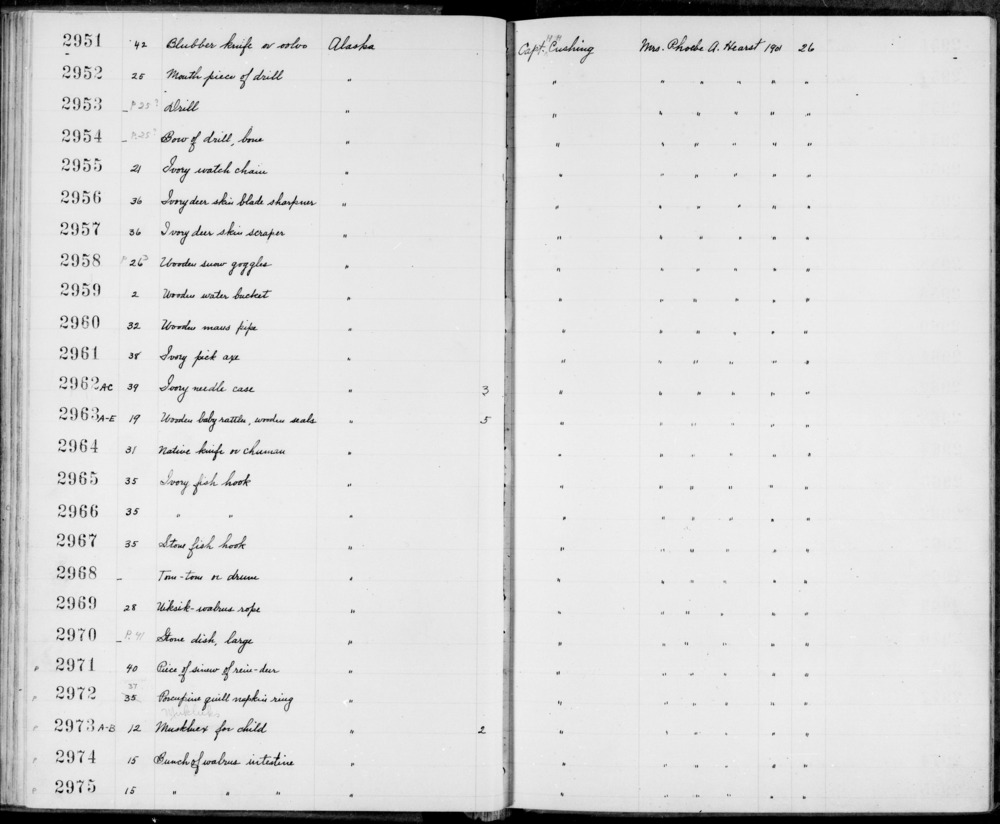 2951 42 Blubber knife or ooloo Alaska Capt. Cushing Mrs. Phoebe A. Hearst 1901 26
2952 25 Mouth piece of drill " " " " " " " "
2953 - P.25? Drill " " " " " " " "
2954 - P.25? Bow of drill, bone " " " " " " " "
2955 21 Ivory watch chain " " " " " " " "
2956 36 Ivory deer skin blade sharpner " " " " " " " "
2957 36 Ivory deer skin scraper " " " " " " " "
2958 P 26? Wooden snow goggles " " " " " " " "
2959 2 Wooden water bucket " " " " " " " "
2960 32 Wooden mans pipe " " " " " " " "
2961 38 Ivory pick axe " " " " " " " "
2962 AC 39 Ivory needle case " 3 " " " " " " "
2963 A-E 19 Wooden baby rattler, wooden seals " 5 " " " " " " "
2964 31 Native knife or chuman " " " " " " " "
2965 35 Ivory fish hook " " " " " " " "
2966 35 " " " " " " " " " "
2967 35 Stone fish hook " " " " " " " "
2968 - Tom-tom or drum " " " " " " " "
2969 28 Uiksik-walrus rope " " " " " " " "
2970 - P. 41 Stone dish, large " " " " " " " "
" 2971 40 Piece of sinew of rein-deer " " " " " " " "
" 2972 37 35 Porcupine quill napkin ring " " " " " " " "
" 2973 A-B 12 Muskluex for child " 2 " " " " " " "
" 2974 15 Bunch of walrus intestine " " " " " " " "
" 2975 15 " " " " " " " " " " "